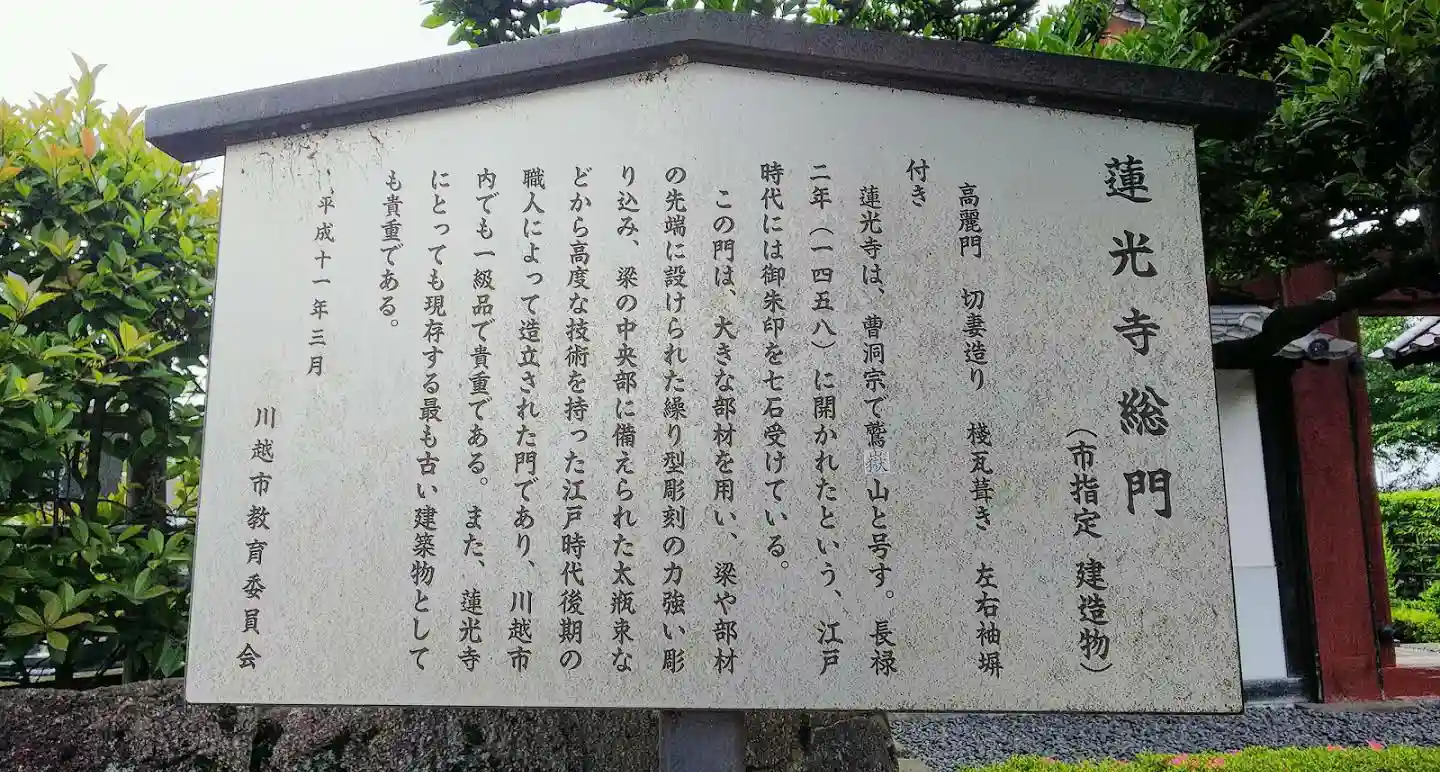 蓮光寺総門
(市指定 建造物)
高麗門 切妻造り 棧瓦葺き 左右袖塀
付き
蓮光寺は、曹洞宗で鷲嶽山と号す。長禄
二年(一四五八)に開かれたという、江戸
時代には御朱印を七石受けている。
この門は、大きな部材を用い、梁や部材
の先端に設けられた繰り型彫刻の力強い彫
り込み、梁の中央部に備えられた太瓶束な
どから高度な技術を持った江戸時代後期の
職人によって造立された門であり、川越市
内でも一級品で貴重である。また、蓮光寺
にとっても現存する最も古い建築物として
も貴重である。
平成十一年三月
川越市教育委員会